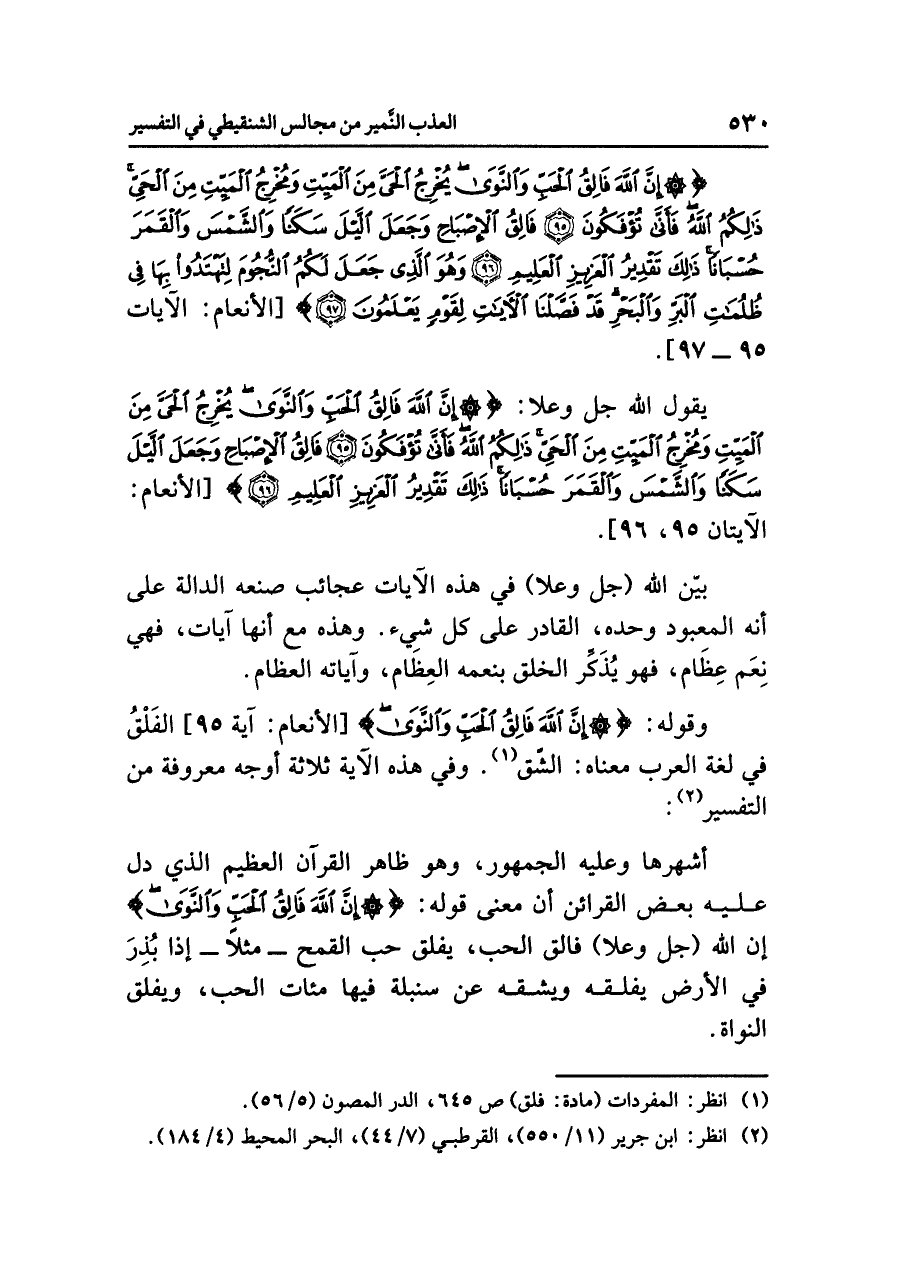 ٥٣٠ العذب النَّمير من مجالس الشنقيطي في التفسير
﴿ ۞ إِنَّ ٱللَّهَ فَالِقُ ٱلْحَبِّ وَٱلنَّوَىٰ ۖ يُخْرِجُ ٱلْحَىَّ مِنَ ٱلْمَيِّتِ وَمُخْرِجُ ٱلْمَيِّتِ مِنَ ٱلْحَىِّ ۚ
ذَٰلِكُمُ ٱللَّهُ ۖ فَأَنَّىٰ تُؤْفَكُونَ ۝٩٥ فَالِقُ ٱلْإِصْبَاحِ وَجَعَلَ ٱلَّيْلَ سَكَنًا وَٱلشَّمْسَ وَٱلْقَمَرَ
حُسْبَانًا ۚ ذَٰلِكَ تَقْدِيرُ ٱلْعَزِيزِ ٱلْعَلِيمِ ۝٩٦ وَهُوَ ٱلَّذِى جَعَلَ لَكُمُ ٱلنُّجُومَ لِتَهْتَدُوا۟ بِهَا فِى
ظُلُمَٰتِ ٱلْبَرِّ وَٱلْبَحْرِ ۗ قَدْ فَصَّلْنَا ٱلْءَايَٰتِ لِقَوْمٍ يَعْلَمُونَ ۝٩٧﴾ [الأنعام: الآيات
٩٥ ــ ٩٧].
يقول الله جل وعلا: ﴿ ۞ إِنَّ ٱللَّهَ فَالِقُ ٱلْحَبِّ وَٱلنَّوَىٰ ۖ يُخْرِجُ ٱلْحَىَّ مِنَ
ٱلْمَيِّتِ وَمُخْرِجُ ٱلْمَيِّتِ مِنَ ٱلْحَىِّ ۚ ذَٰلِكُمُ ٱللَّهُ ۖ فَأَنَّىٰ تُؤْفَكُونَ ۝٩٥ فَالِقُ ٱلْإِصْبَاحِ وَجَعَلَ ٱلَّيْلَ
سَكَنًا وَٱلشَّمْسَ وَٱلْقَمَرَ حُسْبَانًا ۚ ذَٰلِكَ تَقْدِيرُ ٱلْعَزِيزِ ٱلْعَلِيمِ ۝٩٦﴾ [الأنعام:
الآيتان ٩٥، ٩٦].
بيّن الله (جل وعلا) في هذه الآيات عجائب صنعه الدالة على
أنه المعبود وحده، القادر على كل شيء. وهذه مع أنها آيات، فهي
نِعَم عِظَام، فهو يُذَكِّر الخلق بنعمه العِظَام، وآياته العظام.
وقوله: ﴿ ۞ إِنَّ ٱللَّهَ فَالِقُ ٱلْحَبِّ وَٱلنَّوَىٰ ۖ﴾ [الأنعام: آية ٩٥] الفَلْقُ
في لغة العرب معناه: الشّق(١). وفي هذه الآية ثلاثة أوجه معروفة من
التفسير(٢):
أشهرها وعليه الجمهور، وهو ظاهر القرآن العظيم الذي دل
عليه بعض القرائن أن معنى قوله: ﴿ ۞ إِنَّ ٱللَّهَ فَالِقُ ٱلْحَبِّ وَٱلنَّوَىٰ ۖ﴾
إن الله (جل وعلا) فالق الحب، يفلق حب القمح ــ مثلًا ــ إذا بُذِرَ
في الأرض يفلقه ويشقه عن سنبلة فيها مئات الحب، ويفلق
النواة.
(١) انظر: المفردات (مادة: فلق) ص ٦٤٥، الدر المصون (٥/ ٥٦).
(٢) انظر: ابن جرير (١١/ ٥٥٠)، القرطبي (٧/ ٤٤)، البحر المحيط (٤/ ١٨٤).